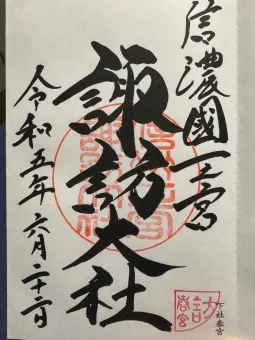 信濃國一之宮
諏訪大社
下社春宮
令和五年六月二十二日